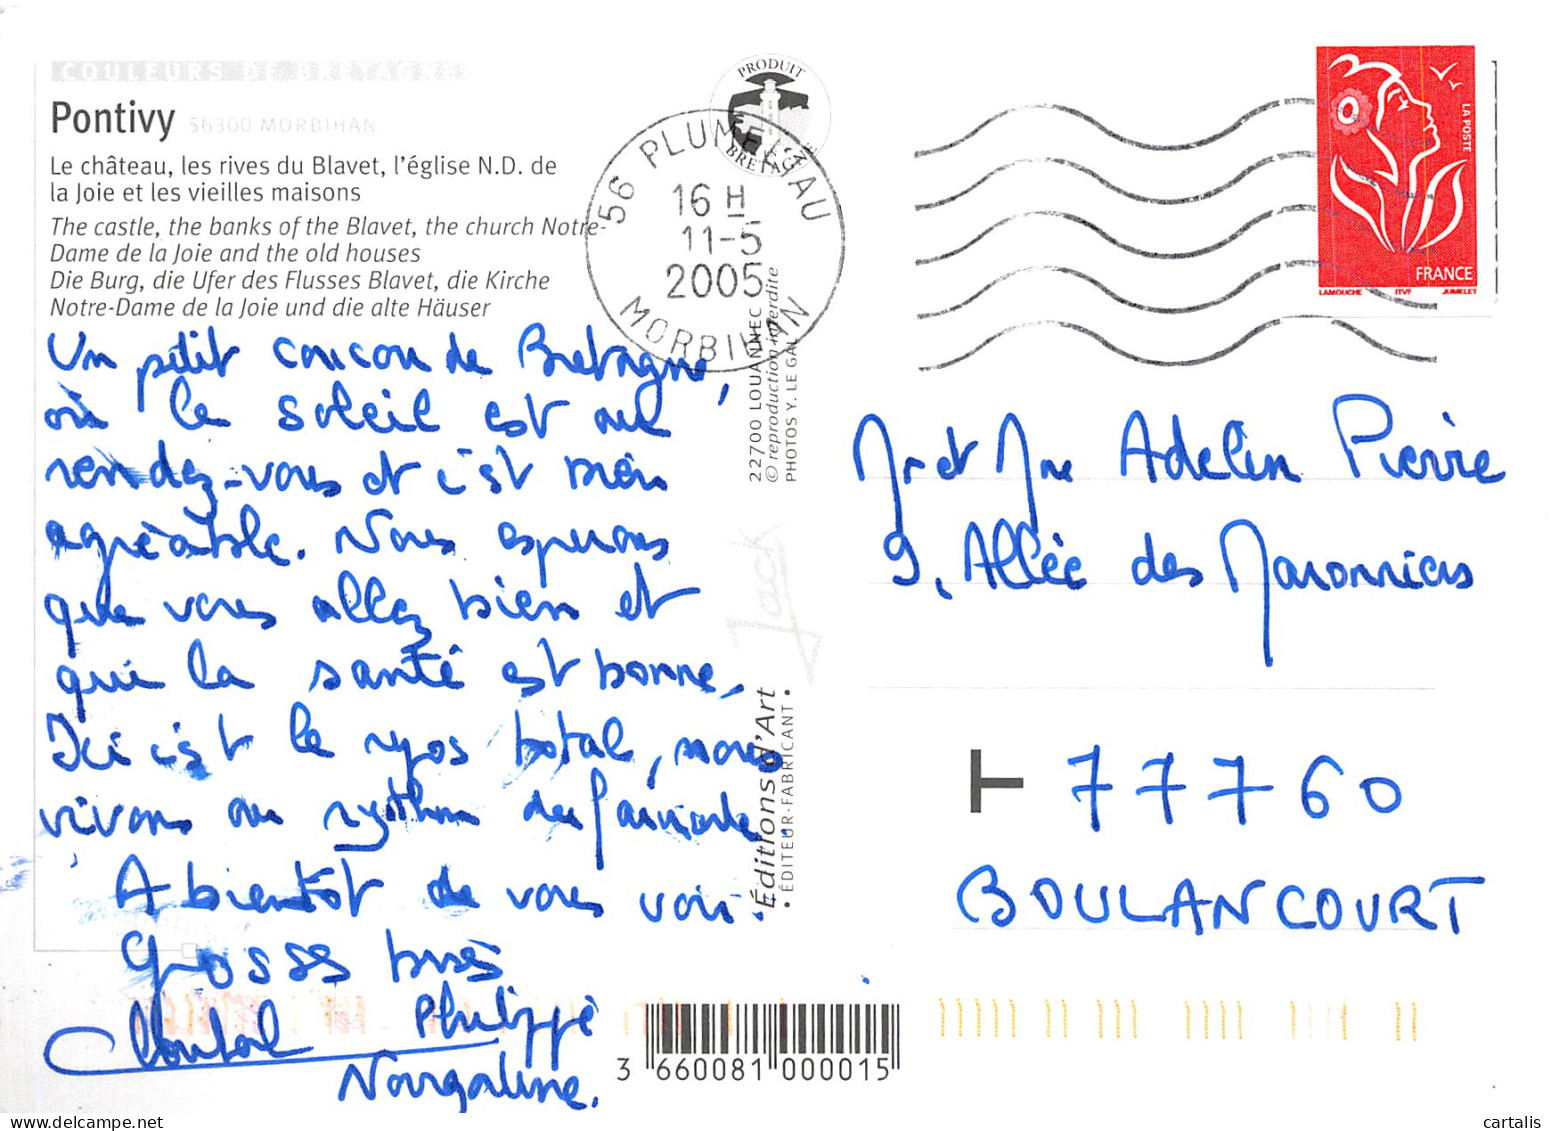 COULEURS DE BRETAGNE
Pontivy 56300 MORBIHAN
Le château, les rives du Blavet, l'église N.D. de
la Joie et les vieilles maisons
The castle, the banks of the Blavet, the church Notre-
Dame de la Joie and the old houses
Die Burg, die Ufer des Flusses Blavet, die Kirche
Notre-Dame de la Joie und die alte Häuser
Un petit coucou de Bretagne,
où le soleil est au
rendez-vous et c'est bien
agréable. Nous espérons
que vous allez bien et
que la santé est bonne.
Ici c'est le repos total, nous
vivons au rythme des
A bientôt de vous voir.
Grosses bises
Chantal Philippe
PRODUIT
BRETAGNE
56 PLUMELIAU
16 H
11-5
2005
MORBIHAN
22700 LOUANNEC
© reproduction interdite
PHOTOS Y. LE GAL
Jack
Éditions d'Art
• ÉDITEUR-FABRICANT •
LA POSTE
FRANCE
LAMOUCHE ITVF JUMELET
Mr et Mme Adelin Pierre
9, Allée des Maronniers
77760
BOULANCOURT
3 660081 000015
cartalis